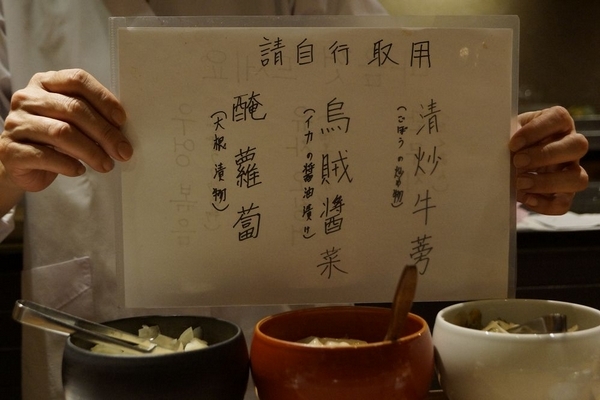 請自行取用
清炒牛蒡
(ごぼうの炒め物)
烏賊醬菜
(イカの醤油漬け)
醃蘿蔔
(大根漬物)